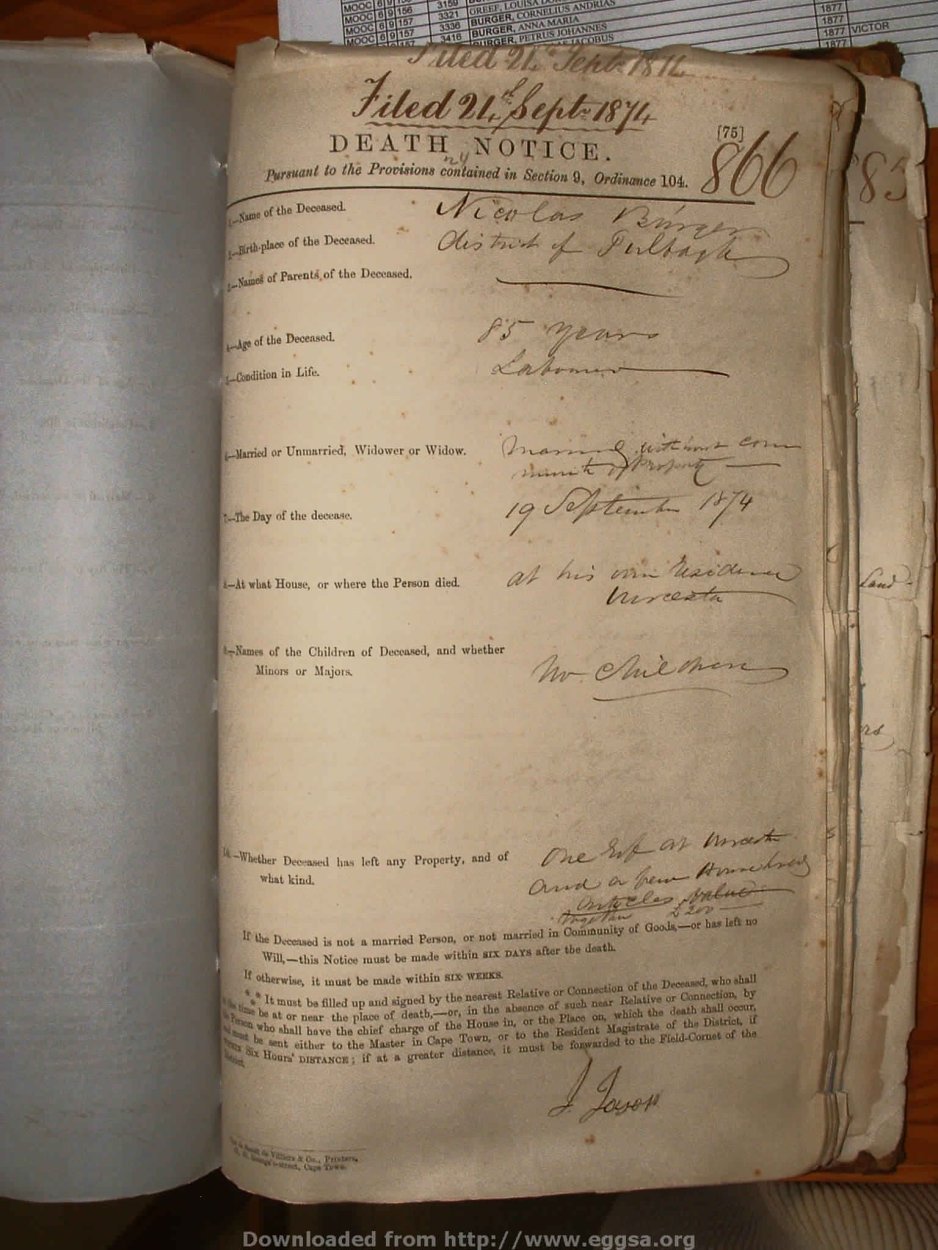 MOOC 6 9 156
3321 GREEF, LOUISA
MOOC 6 9 157 3336 BURGER, CORNELIUS ANDRIAS 1877
MOOC 6 9 157 3416 BURGER, ANNA MARIA 1877
BURGER, PETRUS JOHANNES JACOBUS 1877 VICTOR
Filed 21 Sept 1874
Filed 21 Sept 1874
DEATH NOTICE. [75]
866
Pursuant to the Provisions contained in Section 9, Ordinance 104.
1.—Name of the Deceased. Nicolas Bürger
2.—Birth-place of the Deceased. district of Tulbagh
3.—Names of Parents of the Deceased.
4.—Age of the Deceased. 85 years
5.—Condition in Life. Labourer
6.—Married or Unmarried, Widower or Widow. Married without com
munity of Property
7.—The Day of the decease. 19 September 1874
8.—At what House, or where the Person died. at his own Residence
Worcester
9.—Names of the Children of Deceased, and whether
Minors or Majors. No Children
10.—Whether Deceased has left any Property, and of
what kind. One Erf at Worcester
and a few Household
articles value
together £200
If the Deceased is not a married Person, or not married in Community of Goods,—or has left no
Will,—this Notice must be made within SIX DAYS after the death.
If otherwise, it must be made within SIX WEEKS.
*** It must be filled up and signed by the nearest Relative or Connection of the Deceased, who shall
at the time be at or near the place of death,—or, in the absence of such near Relative or Connection, by
the Person who shall have the chief charge of the House in, or the Place on, which the death shall occur,
and must be sent either to the Master in Cape Town, or to the Resident Magistrate of the District, if
within SIX HOURS' DISTANCE; if at a greater distance, it must be forwarded to the Field-Cornet of the
District.
de Villiers & Co., Printers,
George's-street, Cape Town.
Land
Downloaded from http://www.eggsa.org